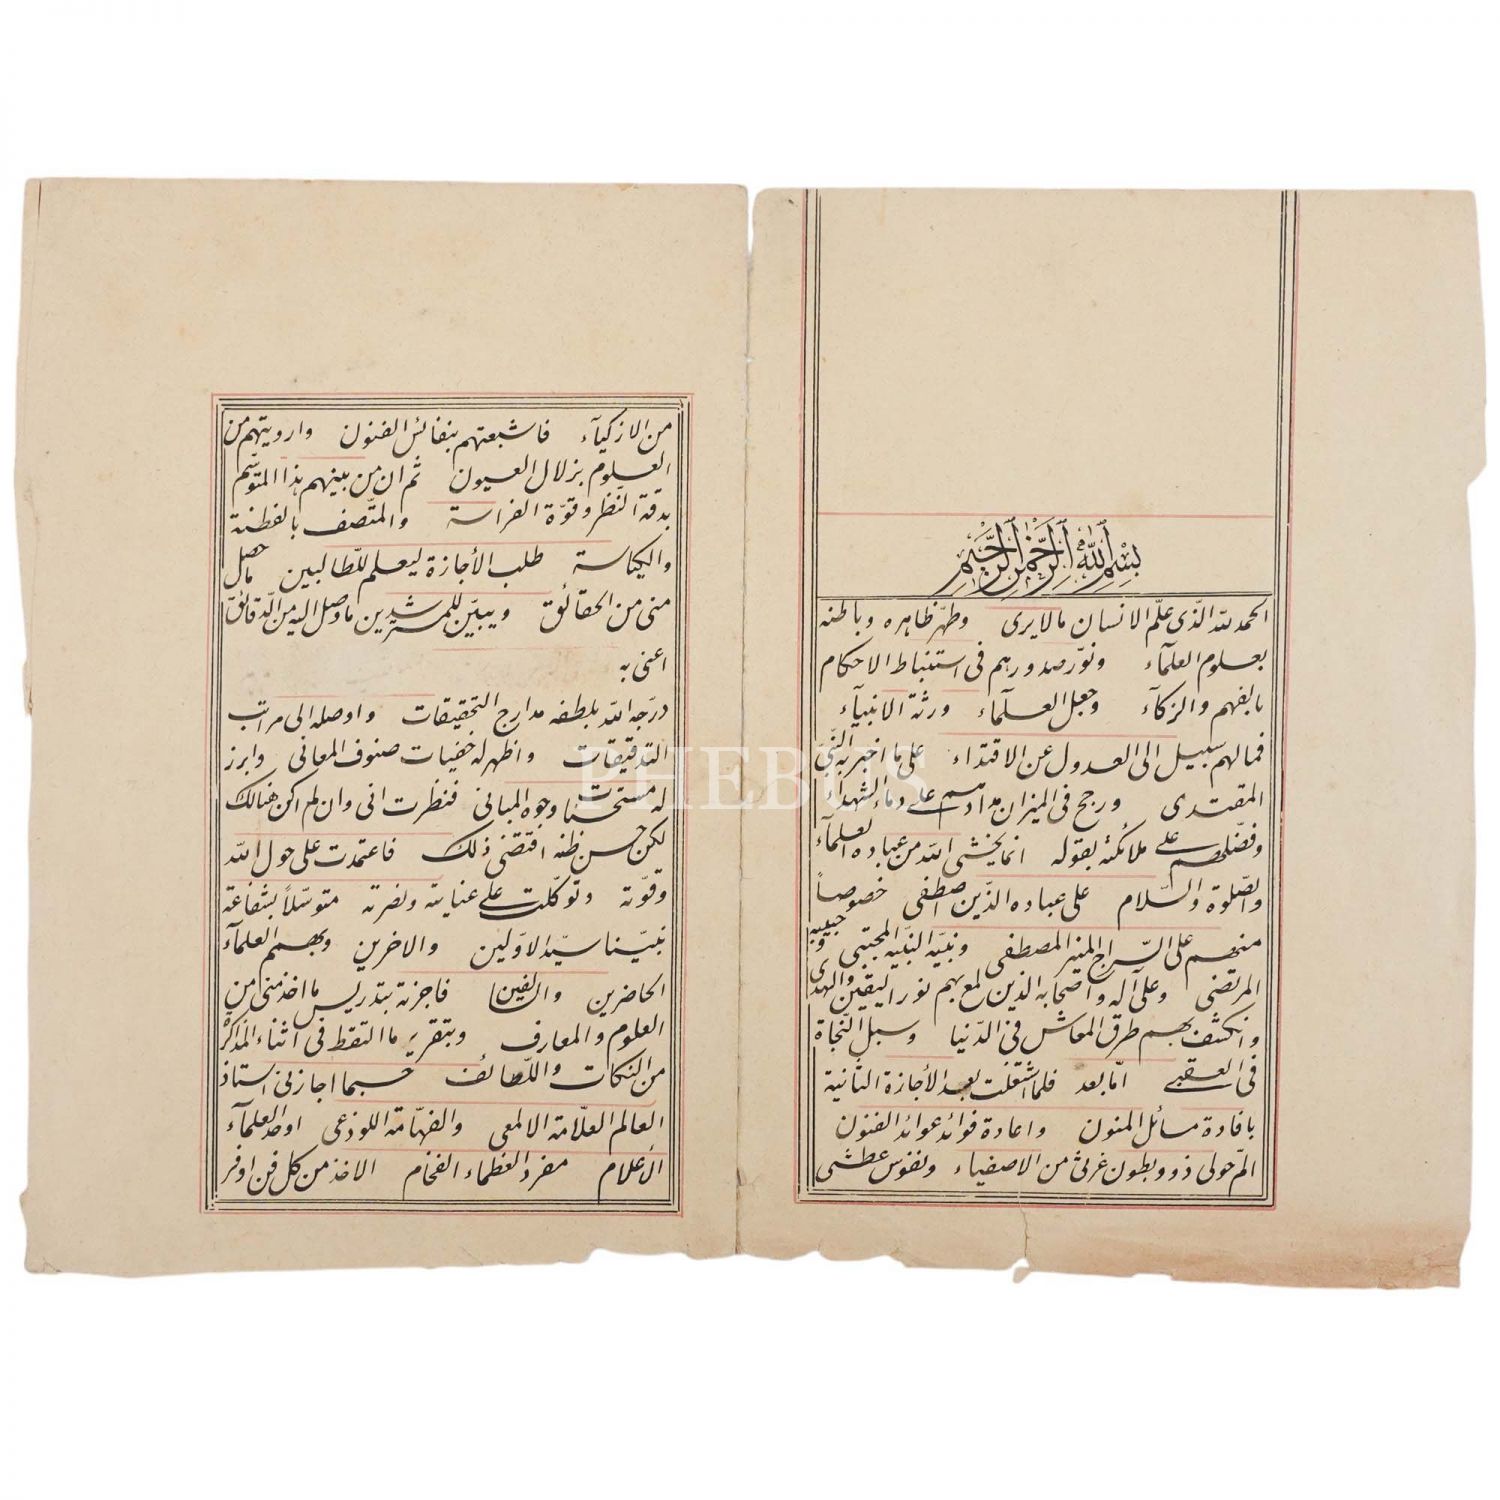 بسم الله الرحمن الرحيم
الحمد لله الذى علّم الانسان مالايرى وطهّر ظاهره وباطنه
بعلوم العلمآء ونوّر صدورهم فى استنباط الاحكام
بالفهم والزكآء وجعل العلمآء ورثة الانبيآء
فمالهم سبيل الى العدول عن الاقتداء على ما اخبر به النّبى
المقتدى ورجح فى الميزان مدادهم على دماء الشهداء
وفضّلهم على ملائكته بقوله انما يخشى الله من عباده العلمآء
والصّلوة والسّلام على عباده الذين اصطفى خصوصاً
منهم على السّراج المنير المصطفى ونبيّه النبيه المجتبى وحبيبه
المرتضى وعلى آله واصحابه الذين لمع بهم نور اليقين والهدى
وانكشف بهم طرق المعاش فى الدّنيا وسبل النّجاة
فى العقبى امّا بعد فلما اشتغلت بعد الأجازة الثانية
بافادة مسائل المتون واعادة فوائد عوائد الفنون
المّ حولى ذوو بطون غرثى من الاصفياء ونفوس عطشى
من الازكيآء فاشبعتهم بنفائس الفنون وارويتهم من
العلوم بزلال العيون ثم ان من بينهم هذا المتوسّم
بدقة النّظر وقوّة الفراسة والمتّصف بالفطنة
والكياسة طلب الأجازة ليعلم للطّالبين ما حصل
منى من الحقائق ويبيّن للمسترشدين ما وصل اليه من الدّقائق
اعنى به
درّجه الله بلطفه مدارج التحقيقات واوصله الى مراتب
التدقيقات واظهر له خفيات صنوف المعانى وابرز
له مستحسنات وجوه المبانى فنظرت انى وان لم اكن هنالك
لكن حسن ظنه اقتضى ذلك فاعتمدت على حول الله
وقوّته وتوكّلت على عنايته ونصرته متوسّلاً بشفاعة
نبيّنا سيّد الاوّلين والاخرين وبهمم العلمآء
الحاضرين فاجزته بتدريس ما اخذ منى من
العلوم والمعارف وبتقرير ما التقط فى اثناء المذاكرة
من النكات واللّطائف حسبما اجازنى استاذ
العالم العلّامة الالمعى والفهّامة اللوذعى اوحد العلمآء
الأعلام مفرد العظماء الفخام الاخذ من كل فن اوفر
PHEBUS